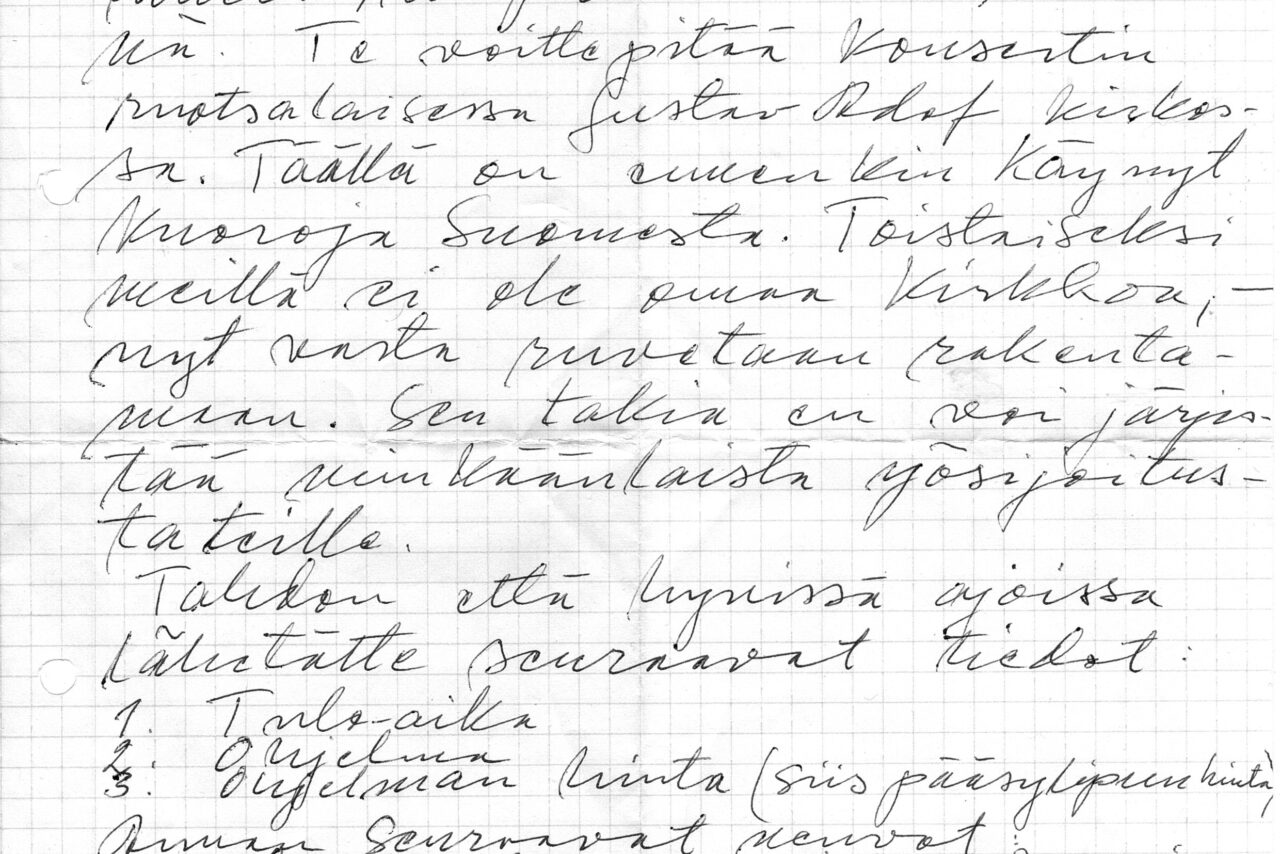 nä. Te voitte pitää Konsertin
ruotsalaisessa Gustav Adof kirkos-
sa. Täällä on ennenkin Käynyt
Kuoroja Suomesta. Toistaiseksi
meillä ei ole omaa Kirkkoa, –
nyt vasta ruvetaan rakenta-
maan. Sen takia en voi järjes-
tää minkäänlaista yösijoitus-
ta teille.
Tahdon että hyvissä ajoissa
lähetätte seuraavat tiedot:
1. Tulo-aika
2. Ohjelma
3. Ohjelman hinta (siis pääsylipun hinta)
Annan Seuraavat neuvot: